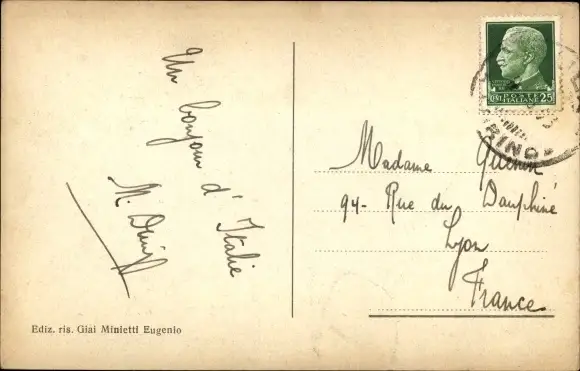 Un bonjour d'Italie
Ediz. ris. Giai Minietti Eugenio
POSTE
ITALIANE
CENT 25
RINO
Madame
94- Rue du Dauphiné
Lyon
France